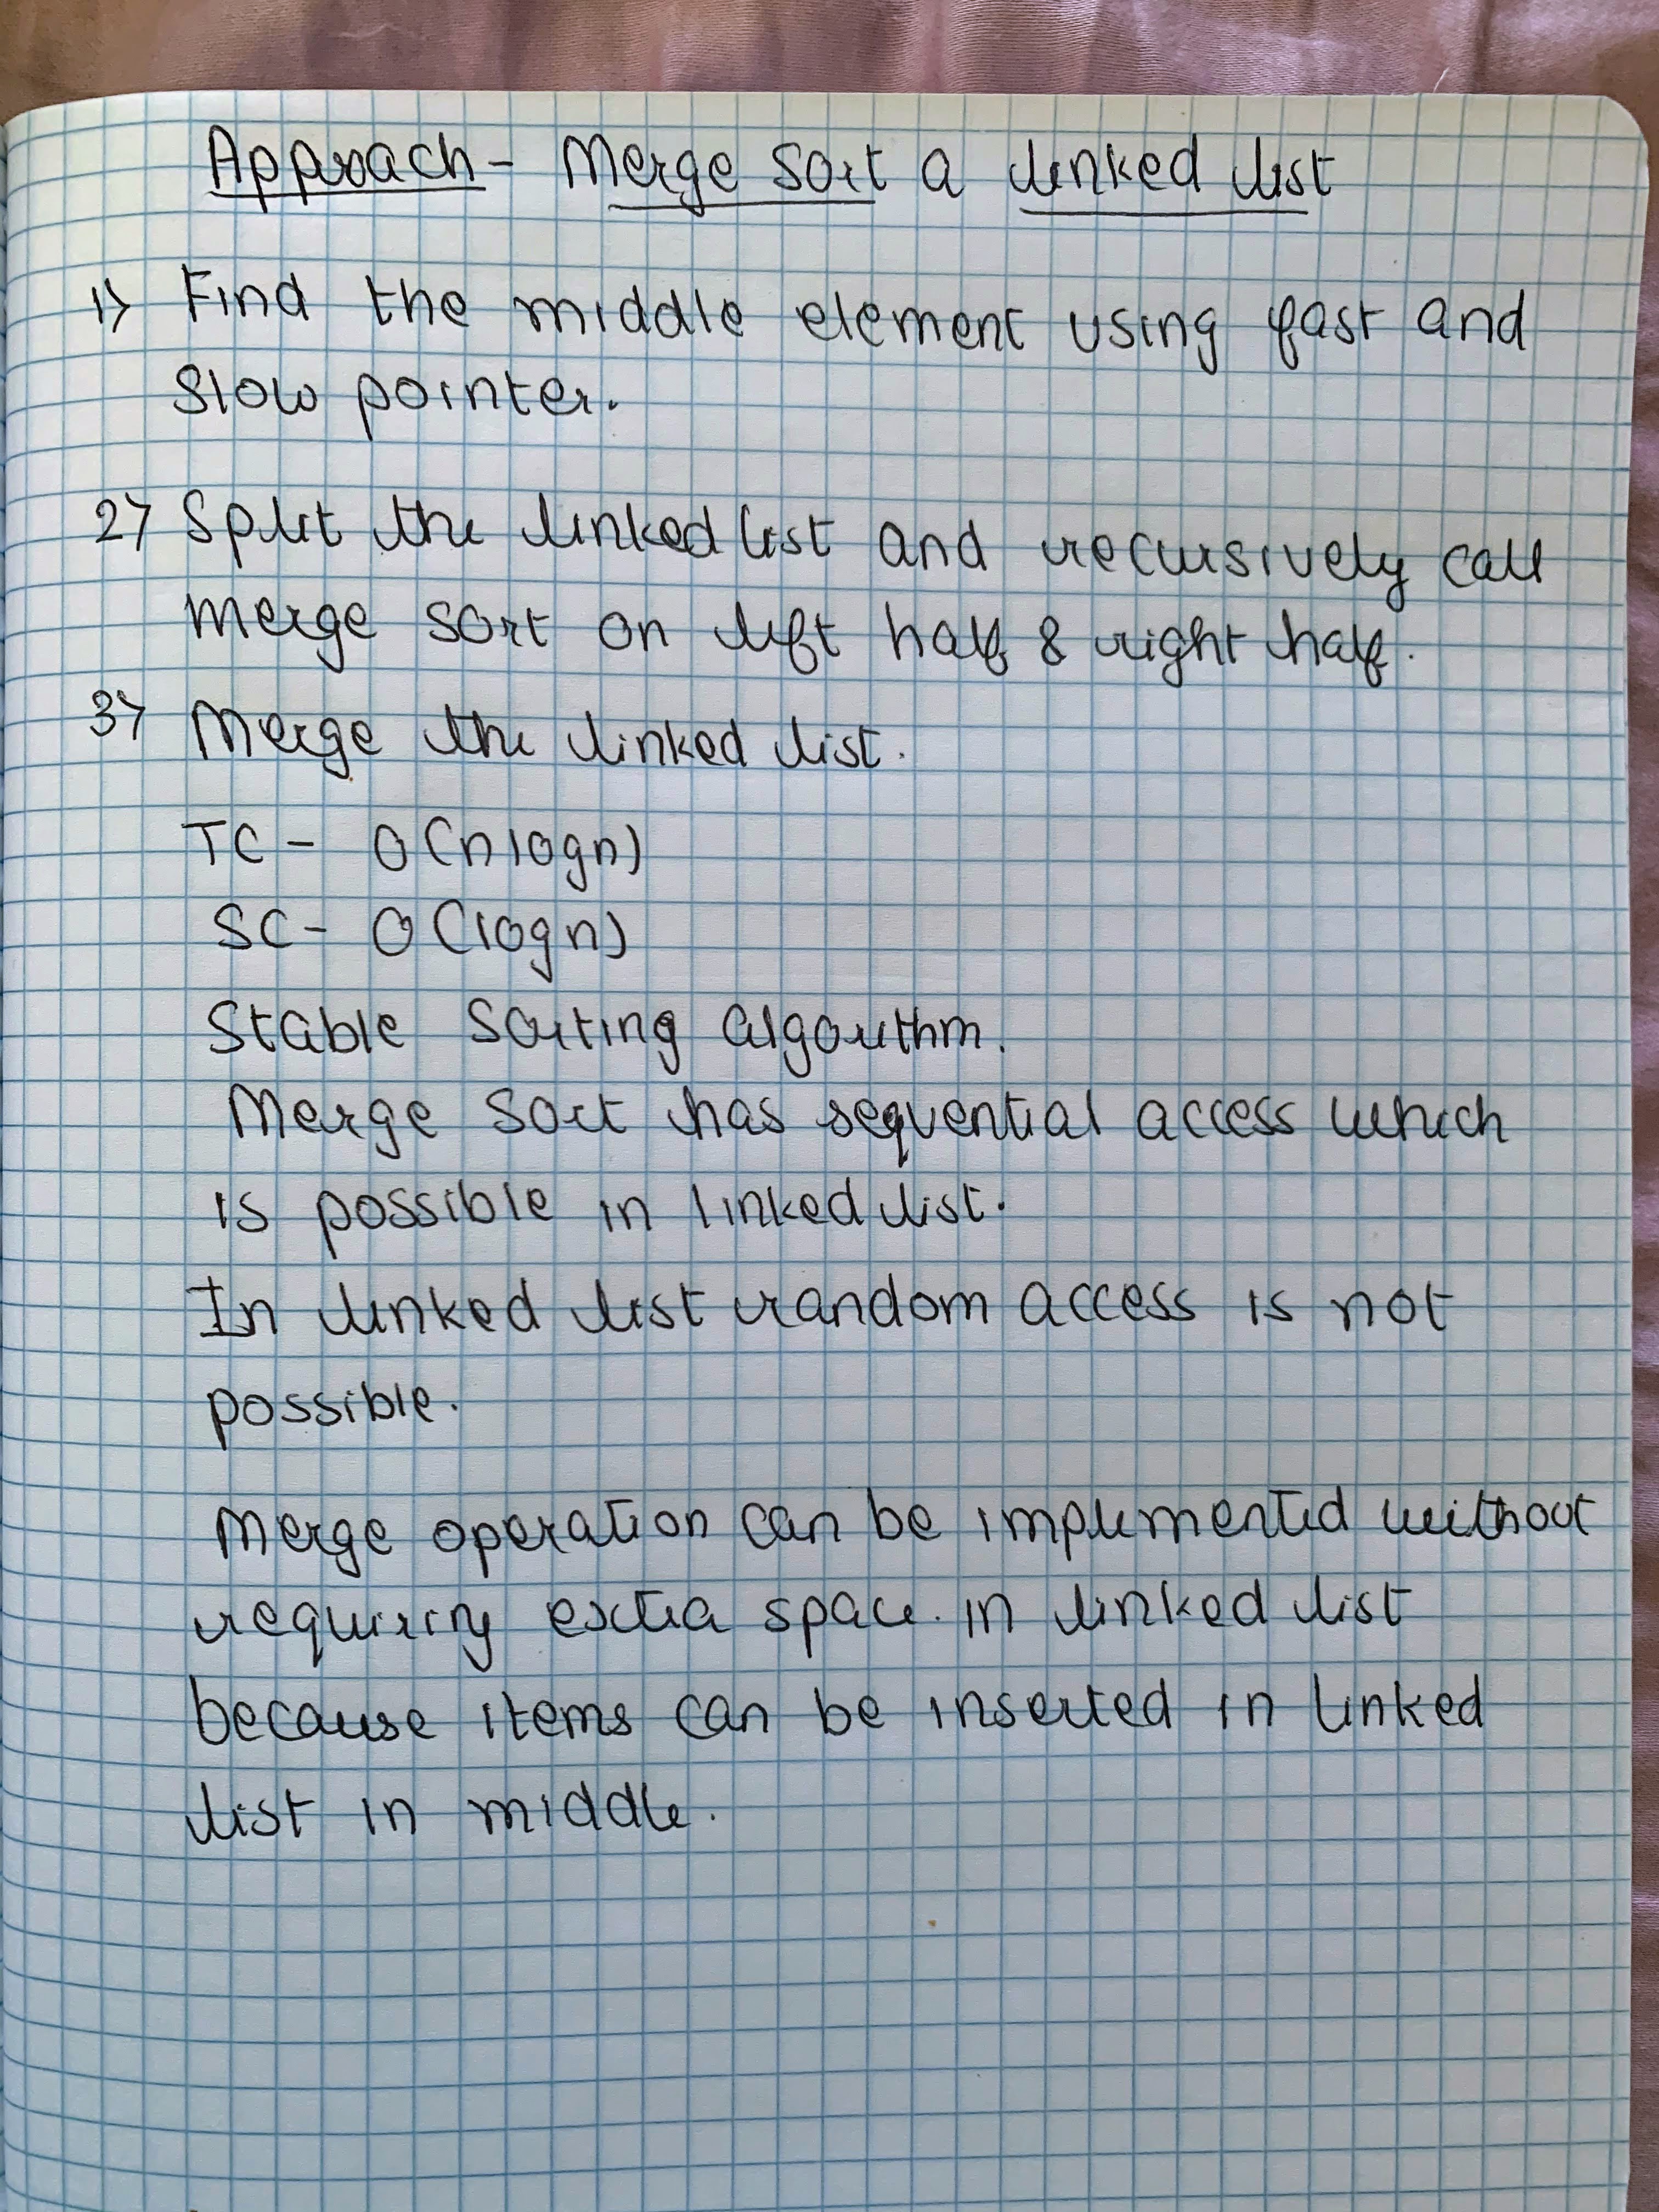 Approach - Merge Sort a linked list
1) Find the middle element using fast and
slow pointer.
2) Split the linked list and recursively call
merge sort on left half & right half.
3) Merge the linked list.
TC - O(nlogn)
SC - O(logn)
Stable Sorting algorithm.
Merge Sort has sequential access which
is possible in linked list.
In linked list random access is not
possible.
Merge operation can be implemented without
requiring extra space in linked list
because items can be inserted in linked
list in middle.